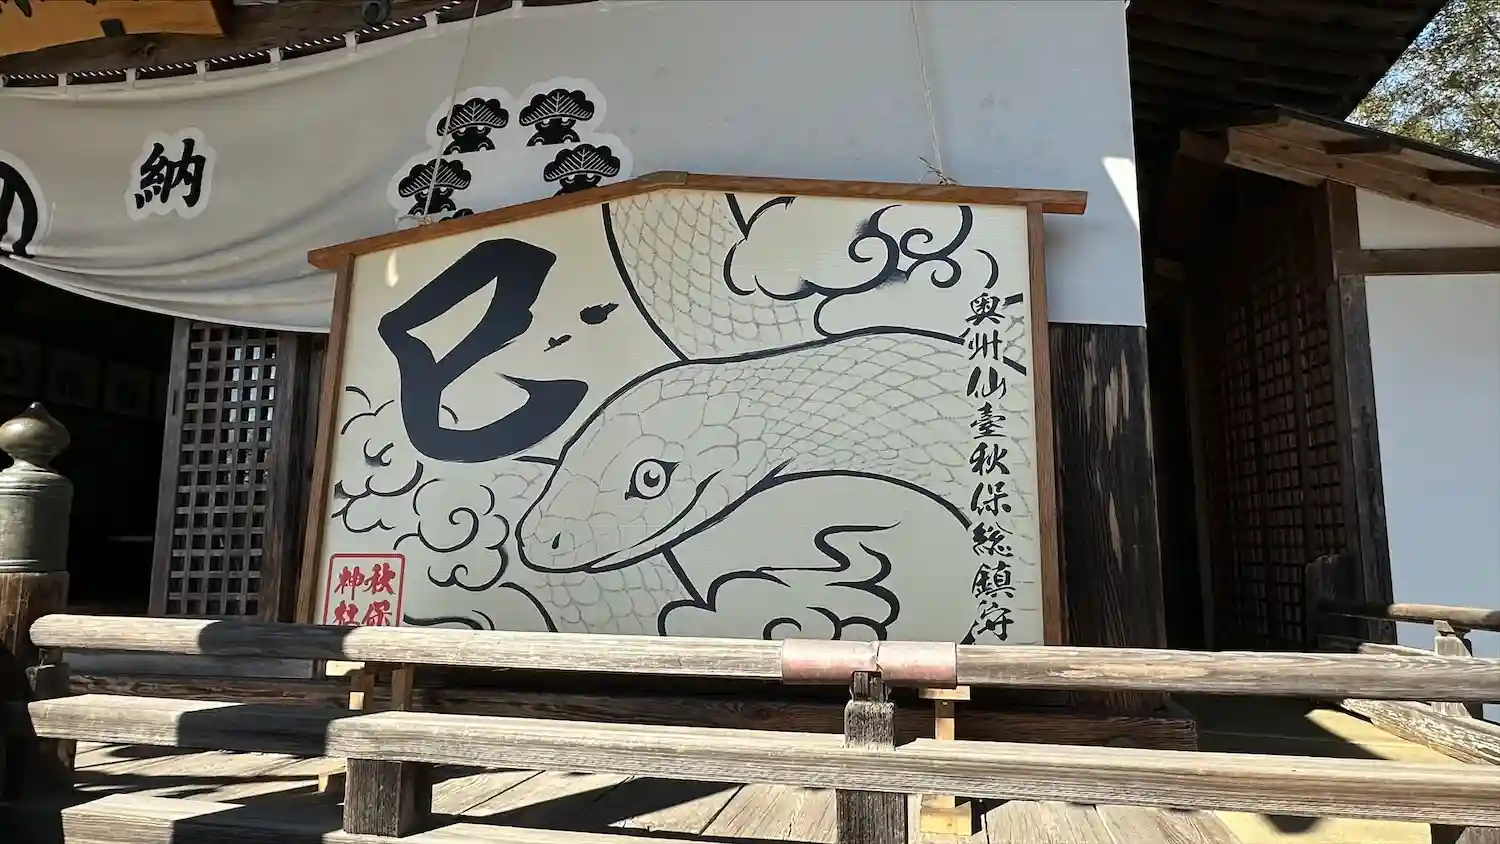 納
巳
奥州仙臺秋保総鎮守
秋保
神社